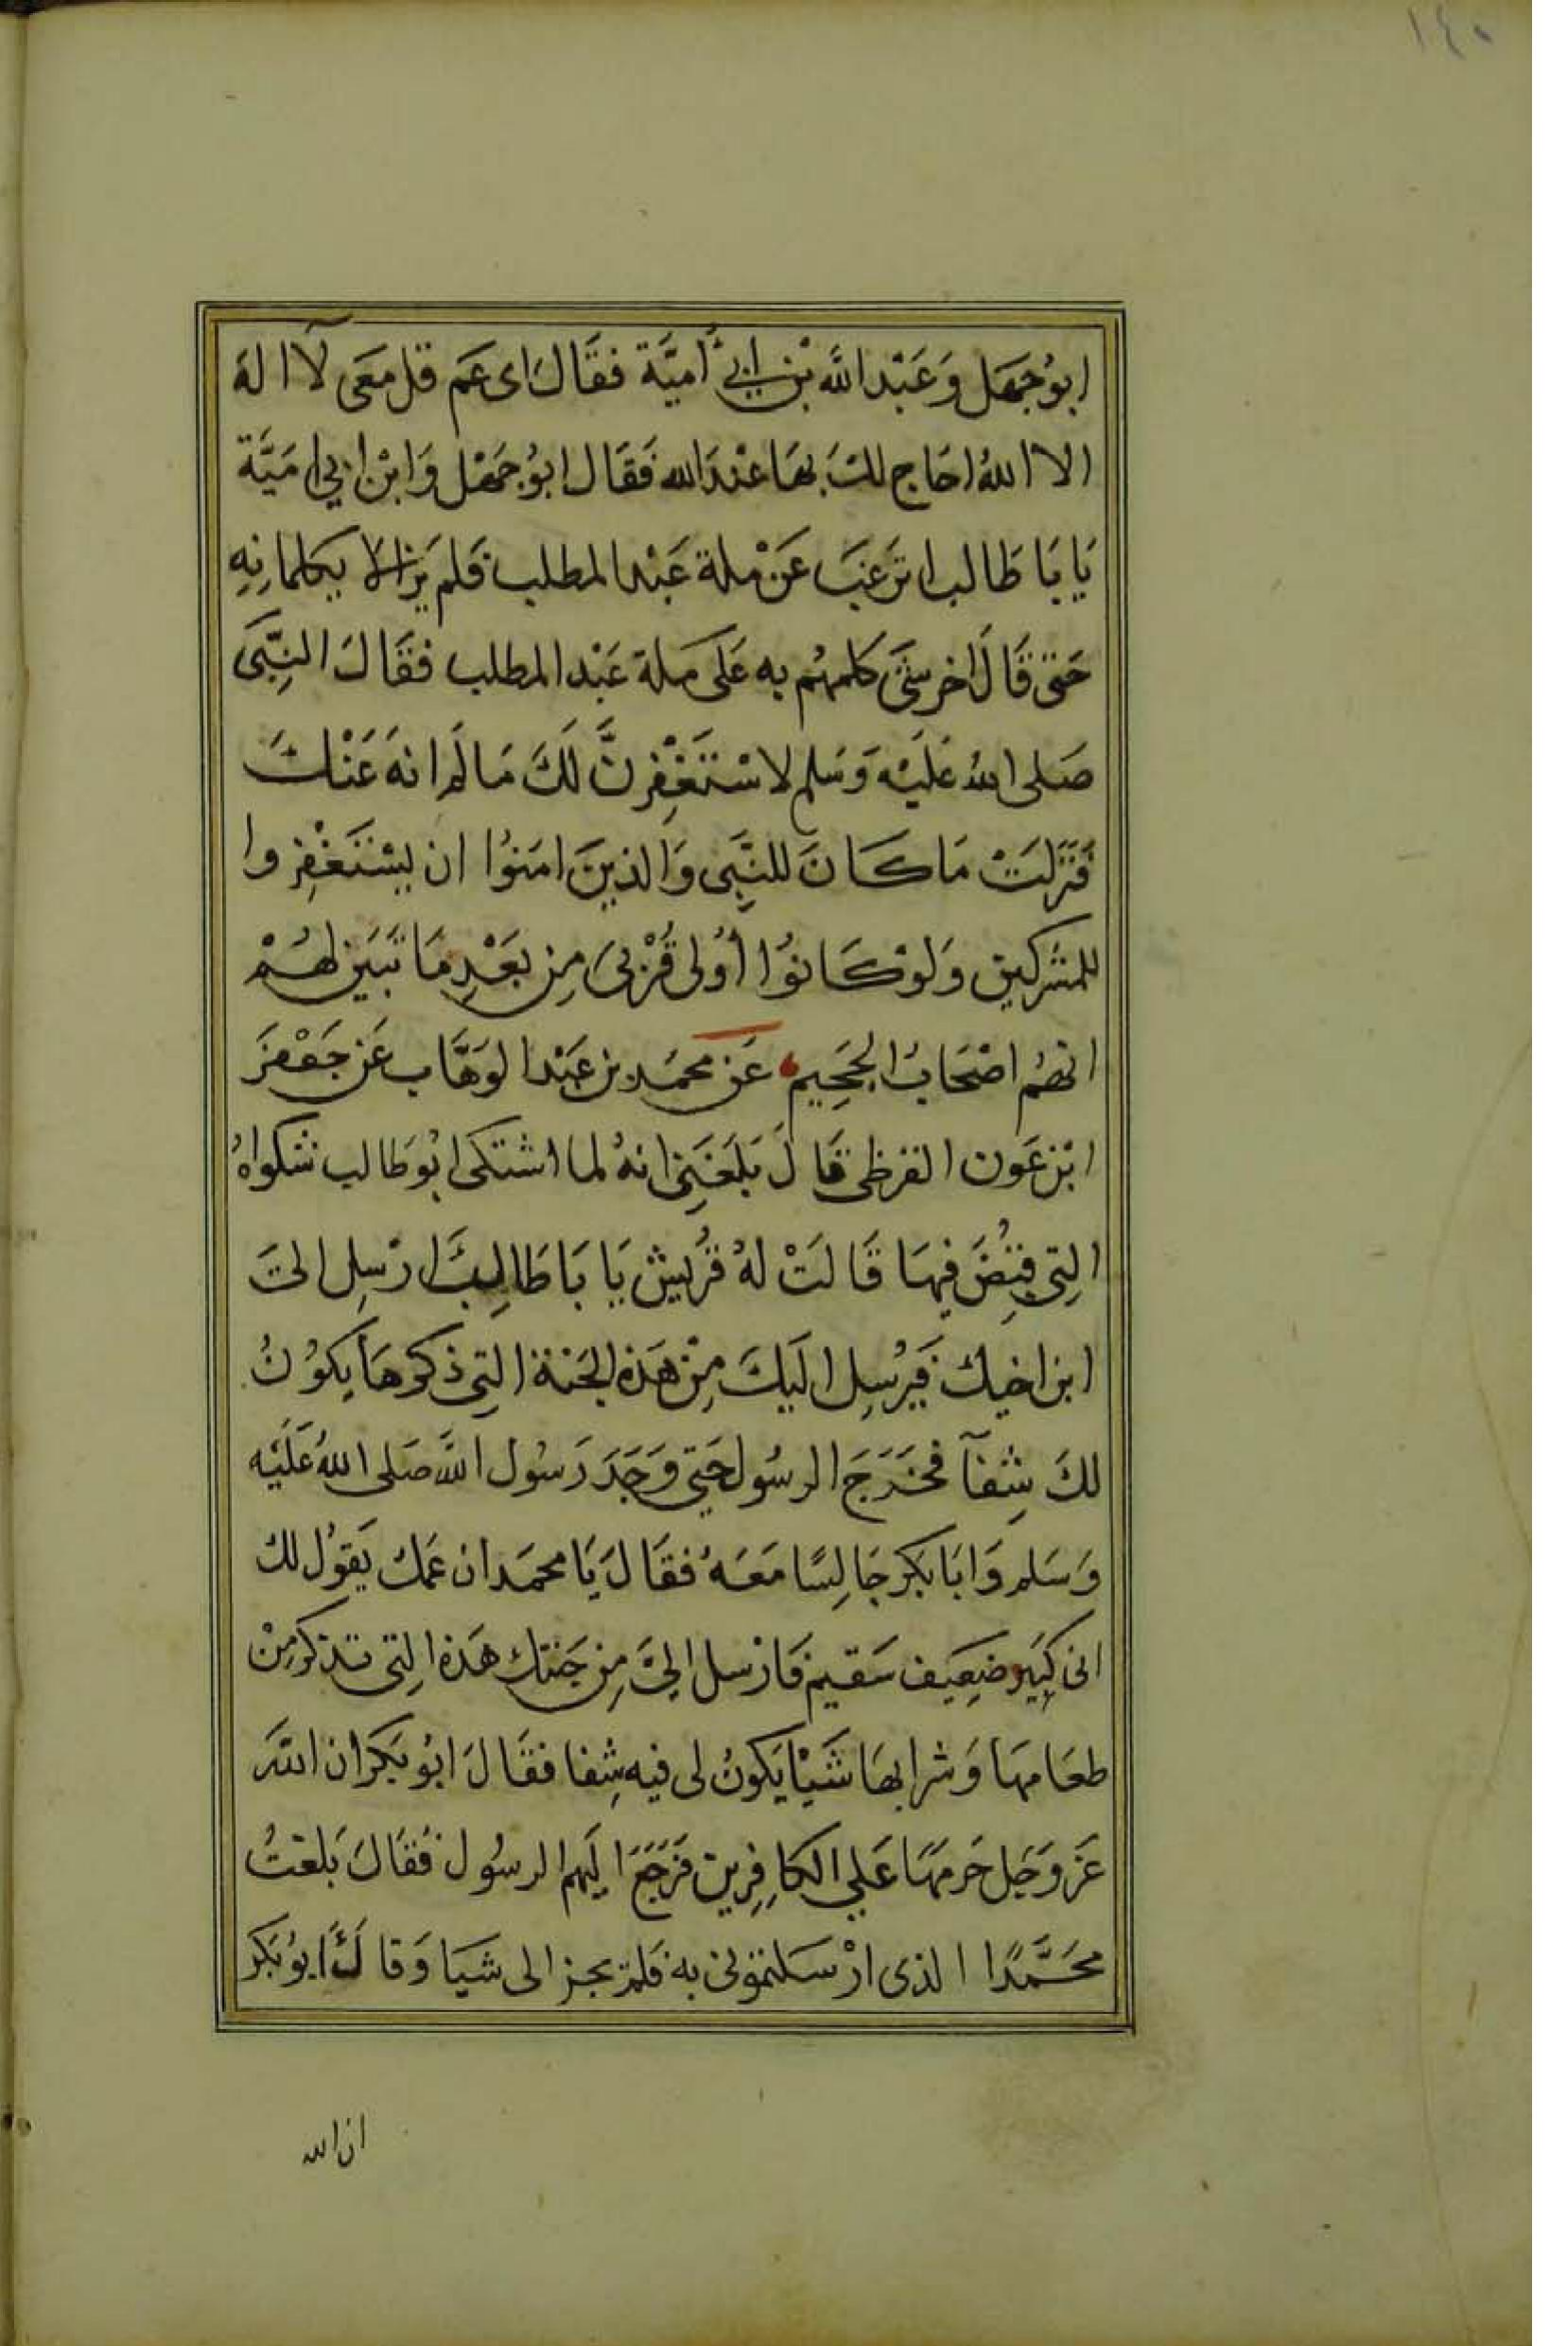 ١٤٠
ابوُ جهَل وَعَبْد اللَّه بْن ابي أُميَّة فقَالَ اى عَم قل معَى لآ اله
الا اللهُ احَاج لكَ بهَا عنْدَ الله فَقَال ابوُ جَهْل وَابْن ابي امَيَّة
يَا بَا طَالب اترَغبَ عَنْ ملة عَبْد المطلب فلم يَزالا يكلمانِهِ
حَتى قَالَ اخر شئ كلمهُم به عَلى مَلة عَبْد المطلب فقَالَ النِبَّى
صَلى اللهُ عَليْهَ وَسَلم لاسْتَغْفِرنَّ لَكَ مَا لَم انهَ عَنْكَ
فَنَزَلتْ مَا كَانَ للنَّبِى وَالذينَ امَنوُا ان يسْتَغْفِروا
للمشركين وَلوْ كَانوُا أوُلى قُرْبىَ مِن بَعْدِ مَا تَبَين لهُمْ
انهُم اصْحَابُ الجَحِيم عَن محمَد بن عَبْد الوَهَّاب عَن جَعْفرَ
ابْن عَون القرظى قَالَ بَلغَنِى انهُ لما اشتكى ابوُ طَالب شكواهُ
التِى قبُضَ فيهَا قَالَتْ لهُ قُريش يَا بَا طَالِبَّ ارْسِل الىَ
ابن اخيك فَيرْسِل اليَكَ مِنْ هَذه الجَنة التِى ذكرهَا يكوُنُ
لكَ شِفآ فخَرَجَ الرسُول حَتِى وَجَدَ رَسُول اللَّه صَلى اللهُ عَلَيْه
وَسَلم وَابَا بَكر جَالِسًا مَعَهُ فقَالَ يَا محمَد ان عَمك يَقوُل لك
انى كبَير ضَعِيَف سَقيم فَارْسل الىَّ مِن جَنتك هَذه التِى تذكر مِنْ
طعَامهَا وَشرابهَا شَيْأ يَكونُ لى فيه شِفا فقَالَ ابوُ بَكر ان اللَّهَ
عَز وَجَل حَرمهَا عَلي الكافِرين فرَجَعَ اليَهم الرسُول فقَالَ بَلغتُ
محَمَّدًا الذى ارْسَلتمونى به فلم يحز الى شيَا وَقالَ ابوُ بَكر
ان الله